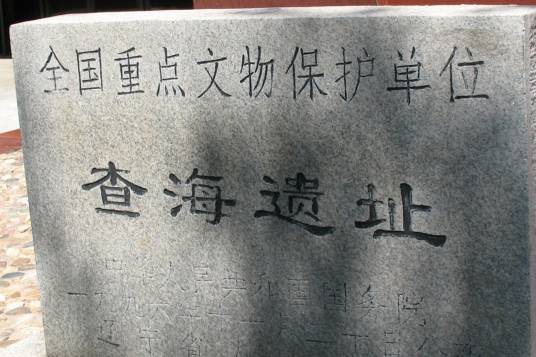 全国重点文物保护单位
查海遗址
中华人民共和国国务院
一九九六年十一月二十日公布
辽宁省